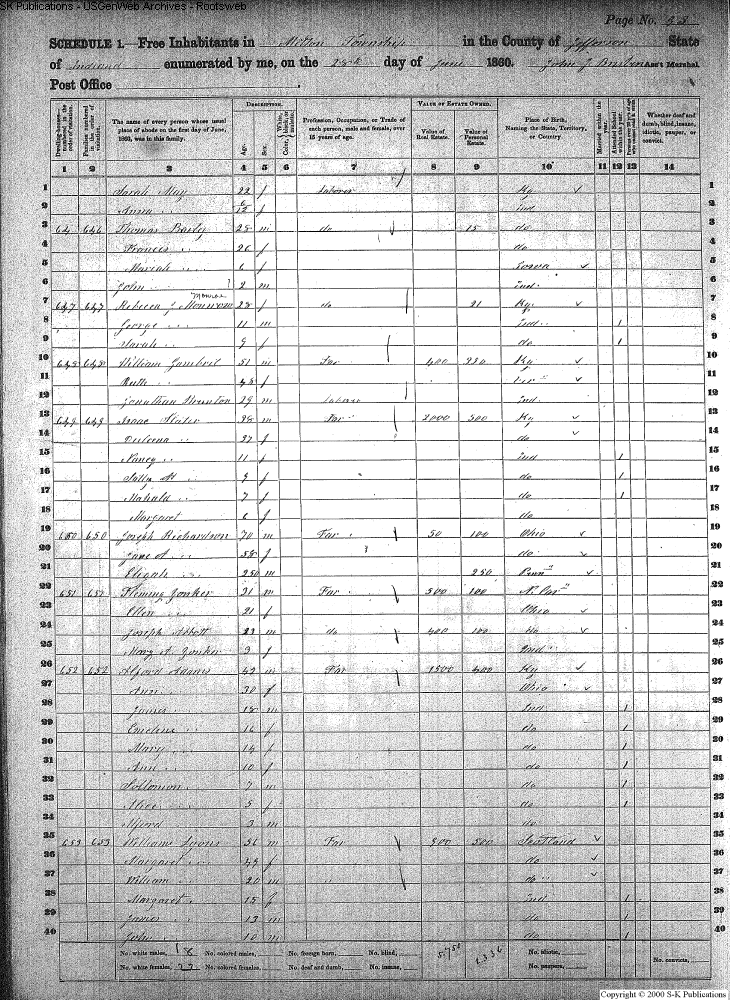 SK Publications - USGenWeb Archives - Rootsweb
Page No.
SCHEDULE 1.—Free Inhabitants in Milton Township in the County of Jefferson State
of Indiana enumerated by me, on the day of June 1860. John J Ass't Marshal
Post Office
Dwelling-houses—numbered in the order of visitation.
Families numbered in the order of visitation.
The name of every person whose usual place of abode on the first day of June, 1860, was in this family.
Description.
Age.
Sex.
Color, White, black, or mulatto.
Profession, Occupation, or Trade of each person, male and female, over 15 years of age.
Value of Estate Owned.
Value of Real Estate.
Value of Personal Estate.
Place of Birth, Naming the State, Territory, or Country.
Married within the year.
Attended School within the year.
Whether deaf and dumb, blind, insane, idiotic, pauper, or convict.
1 2 3 4 5 6 7 8 9 10 11 12 13 14
1 Sarah May 22 f Laborer Ky 1
2 Anna " 6/12 f Ind 2
3 646 Thomas 28 m do 15 do 3
4 Frances " 26 f do 4
5 Mariah " 6 f Iowa 5
6 John " 2 m Ind 6
7 647 647 Rebecca J Monrow Monroe 28 f do 21 Ky 7
8 George " 11 m Ind 1 8
9 Sarah " 9 f do 1 9
10 648 648 William 51 m Far 400 220 Ky 10
11 Ruth " 48 f 11
12 Jonathan 29 m Laborer Ind 12
13 649 649 Isaac Slater 38 m Far 2000 300 Ky 13
14 " 37 f do 14
15 Nancy " 11 f Ind 1 15
16 " 9 f do 1 16
17 Mahala " 7 f do 1 17
18 Margaret " 6 f do 18
19 650 650 Joseph Richardson 70 m Far 50 100 Ohio 19
20 Jane " 58 f do 20
21 Elizah " m 250 Penn 21
22 651 651 Fleming Yonker 31 m Far 500 100 N. Car 22
23 Ellen " 21 f Ohio 23
24 Joseph Abbott 23 m do 400 100 24
25 Mary A. Yonker 3 f Ind 25
26 652 652 Alford Adams 42 m Far 1500 400 Ky 26
27 Ann " 30 f Ohio 27
28 James " 18 m Ind 1 28
29 " 16 f do 1 29
30 Mary " 14 f do 1 30
31 Ann " 10 f do 1 31
32 Sollomon " 7 m do 1 32
33 Alice " 5 f do 1 33
34 Alford " 3 m do 34
35 653 653 William Lyons 56 m Far 800 500 Scotland 35
36 Margaret " f do 36
37 William " 20 m " do 37
38 Margaret " 15 f Ind 1 38
39 James " 13 m do 1 39
40 John " 10 m do 1 40
No. white males, 18 No. colored males, No. foreign born, No. blind, 5,750 No. idiotic,
No. white females, 22 No. colored females, No. deaf and dumb, No. insane, No. paupers, No. convicts,
Copyright © 2000 S-K Publications